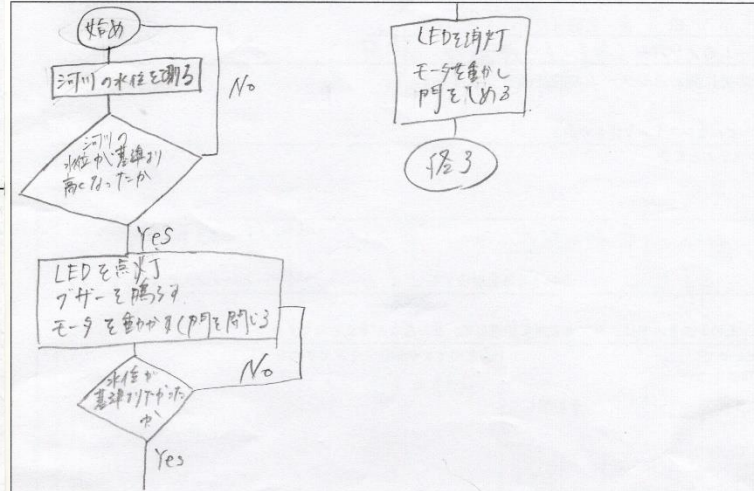 始め
河川の水位を測る
No
河川の
水位が基準より
高くなったか
Yes
LEDを点灯
ブザーを鳴らす
モータを動かす(門を閉じる
No
水位が
基準より下がった
か
Yes
LEDを消灯
モータを動かし
門をしめる
終了